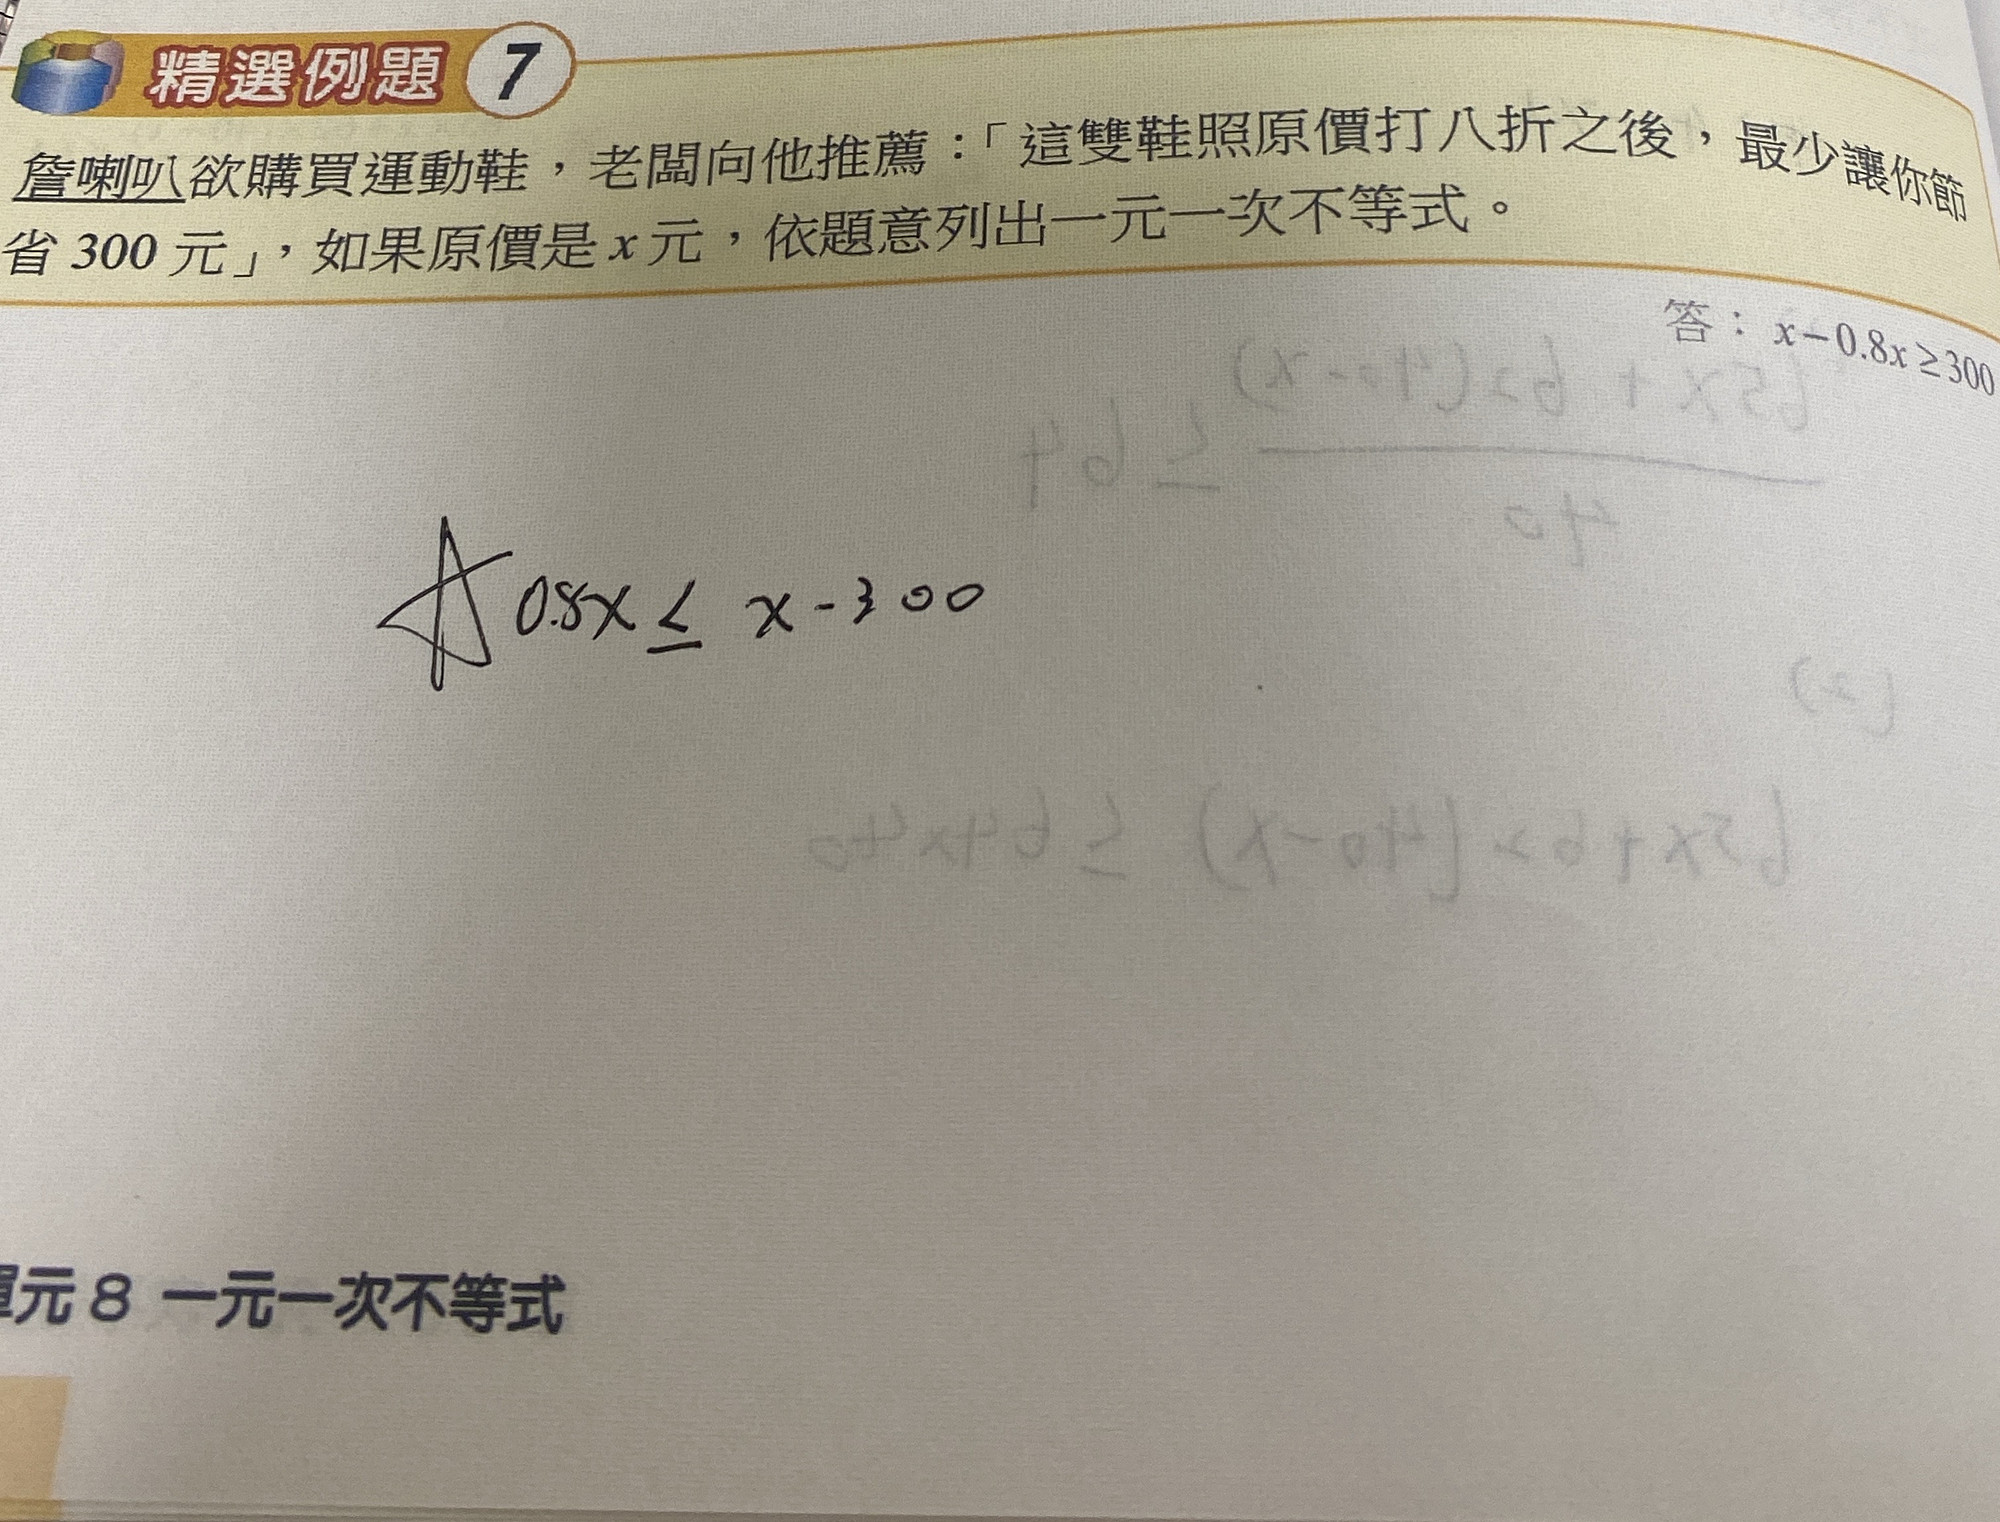 精選例題 7
詹喇叭欲購買運動鞋，老闆向他推薦：「這雙鞋照原價打八折之後，最少讓你節
省 300 元」，如果原價是 x 元，依題意列出一元一次不等式。
答：x－0.8x≥300
65x+62(40-x)
≤64
40
0.8x ≤ x-300
(2)
65x+62(40-x) ≤ 64x40
單元 8 一元一次不等式